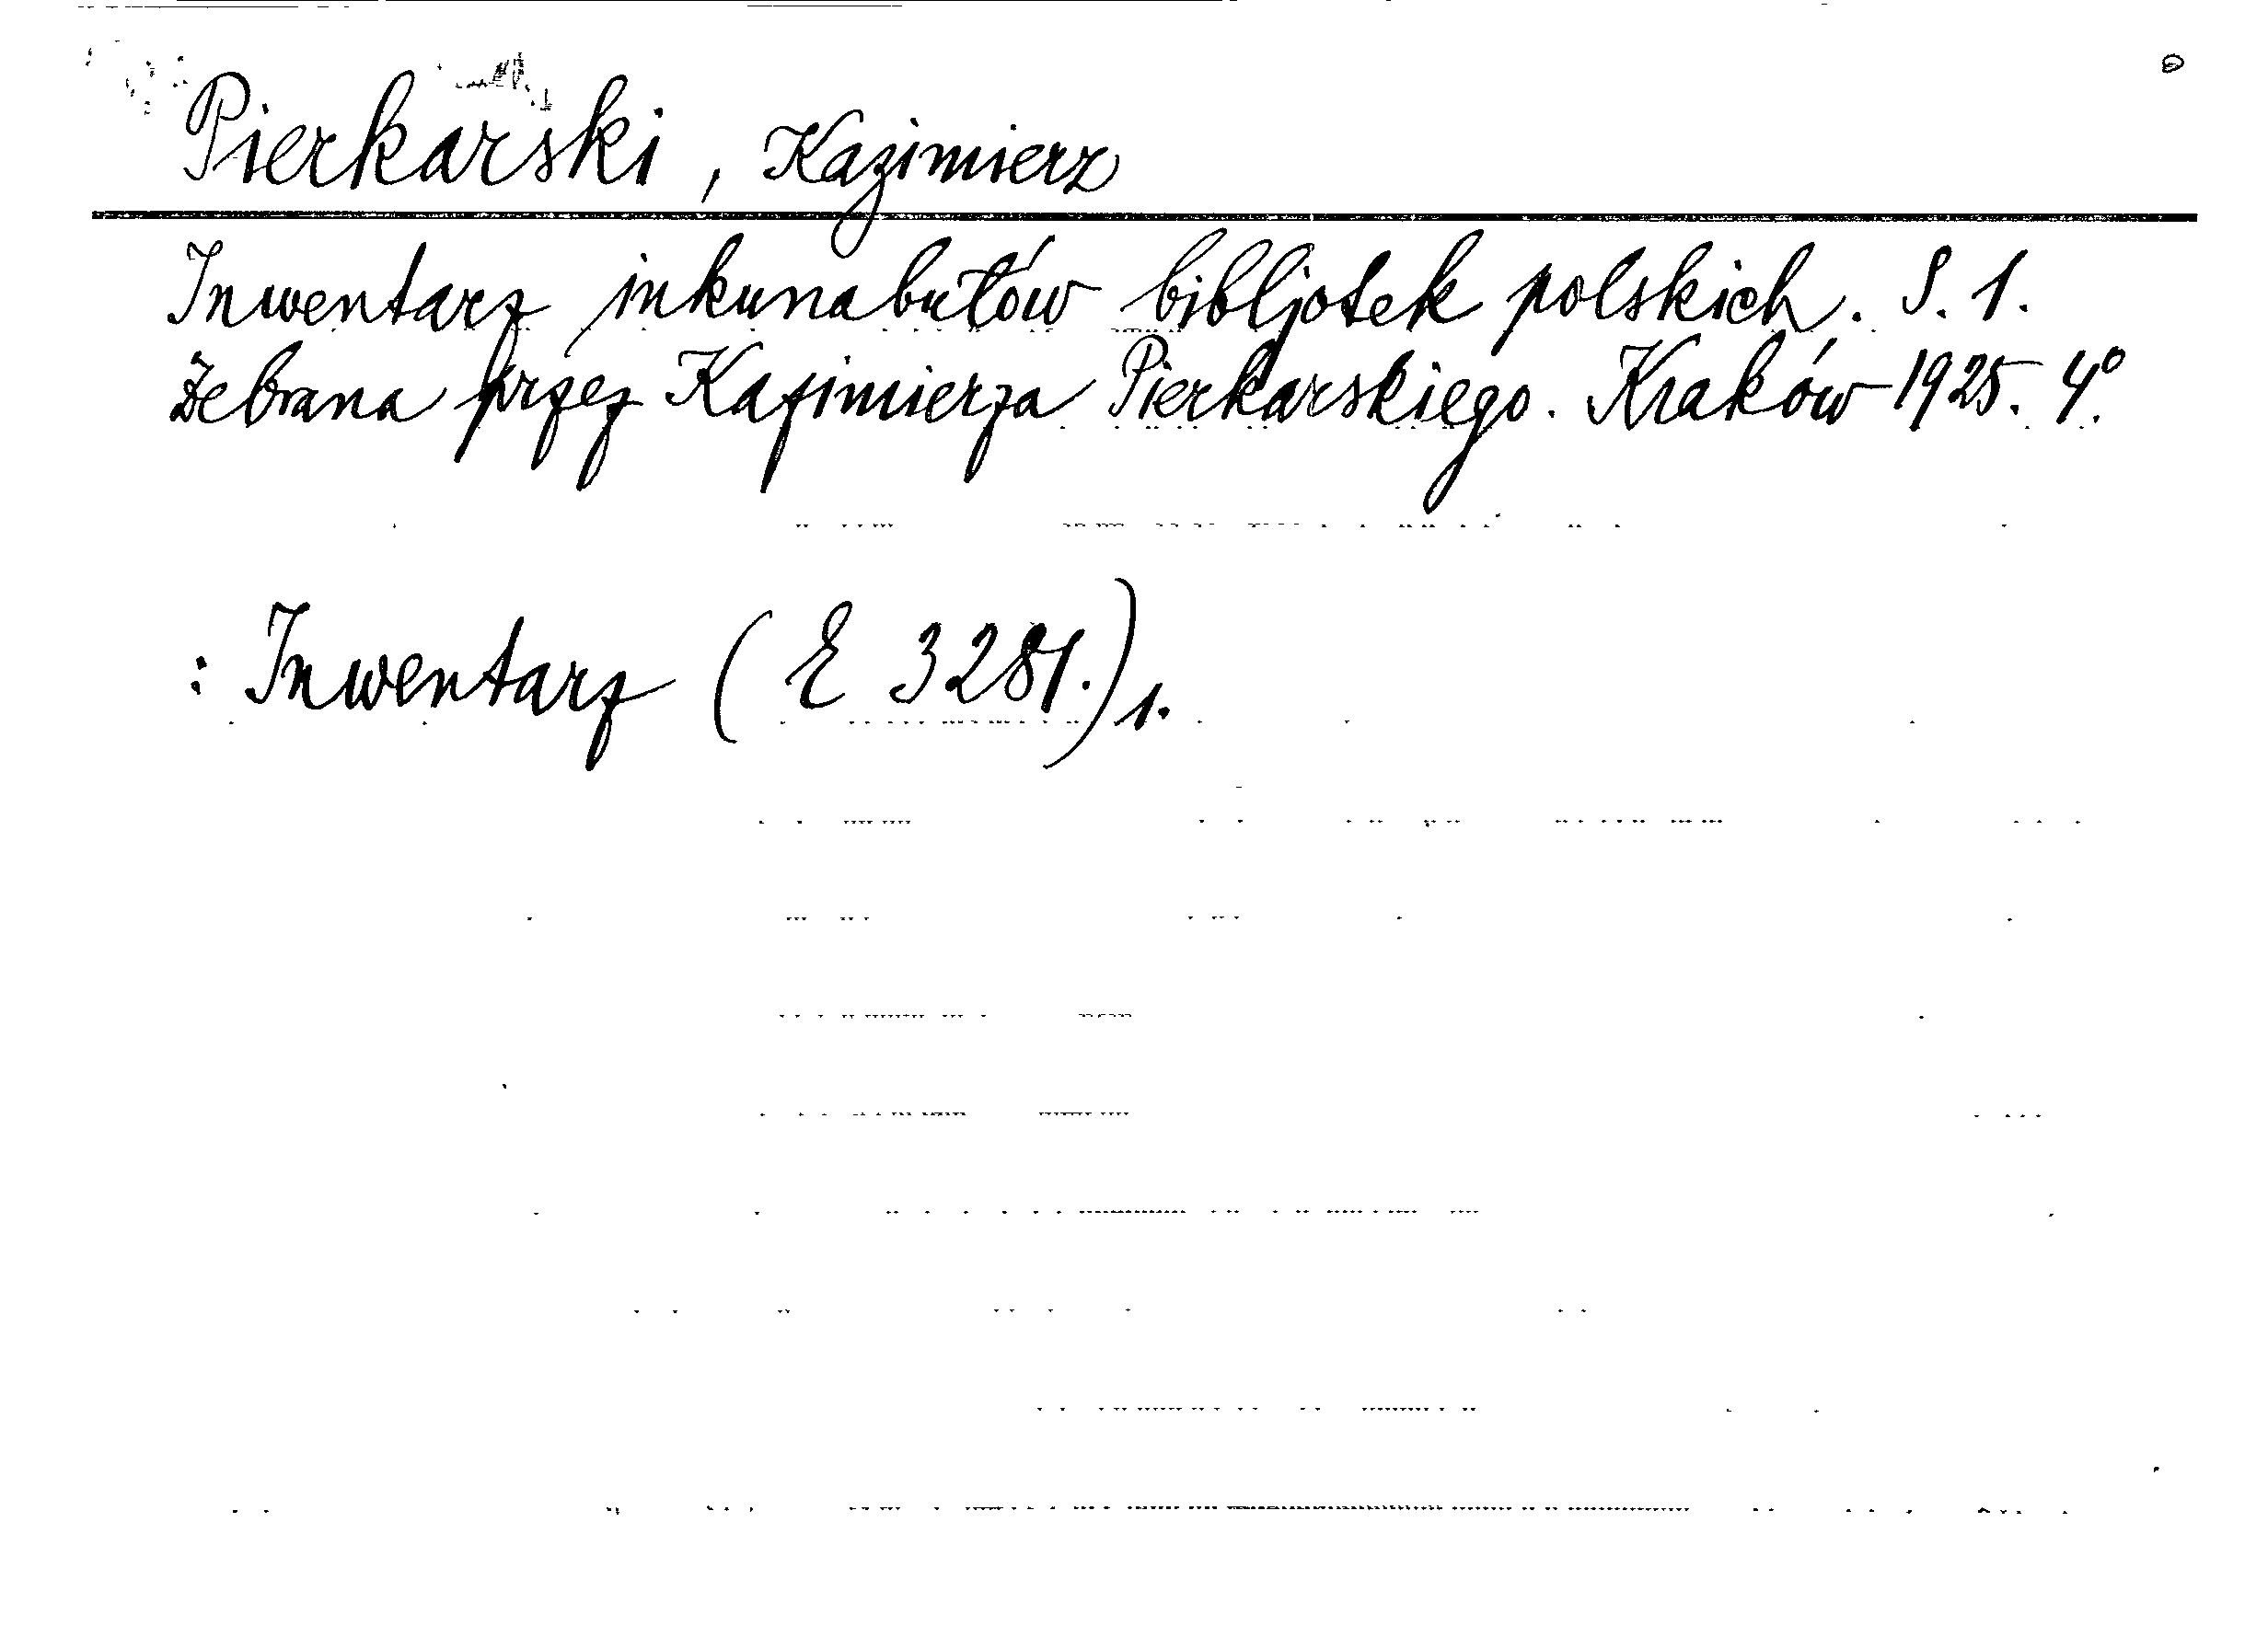 Pierkarski, Kazimierz
Inwentarz inkunabułów bibljotek polskich. S. 1.
Żebrana przez Kazimierza Pierkarskiego. Kraków 1925. 4°.
: Inwentarz (E 3281.) 1.